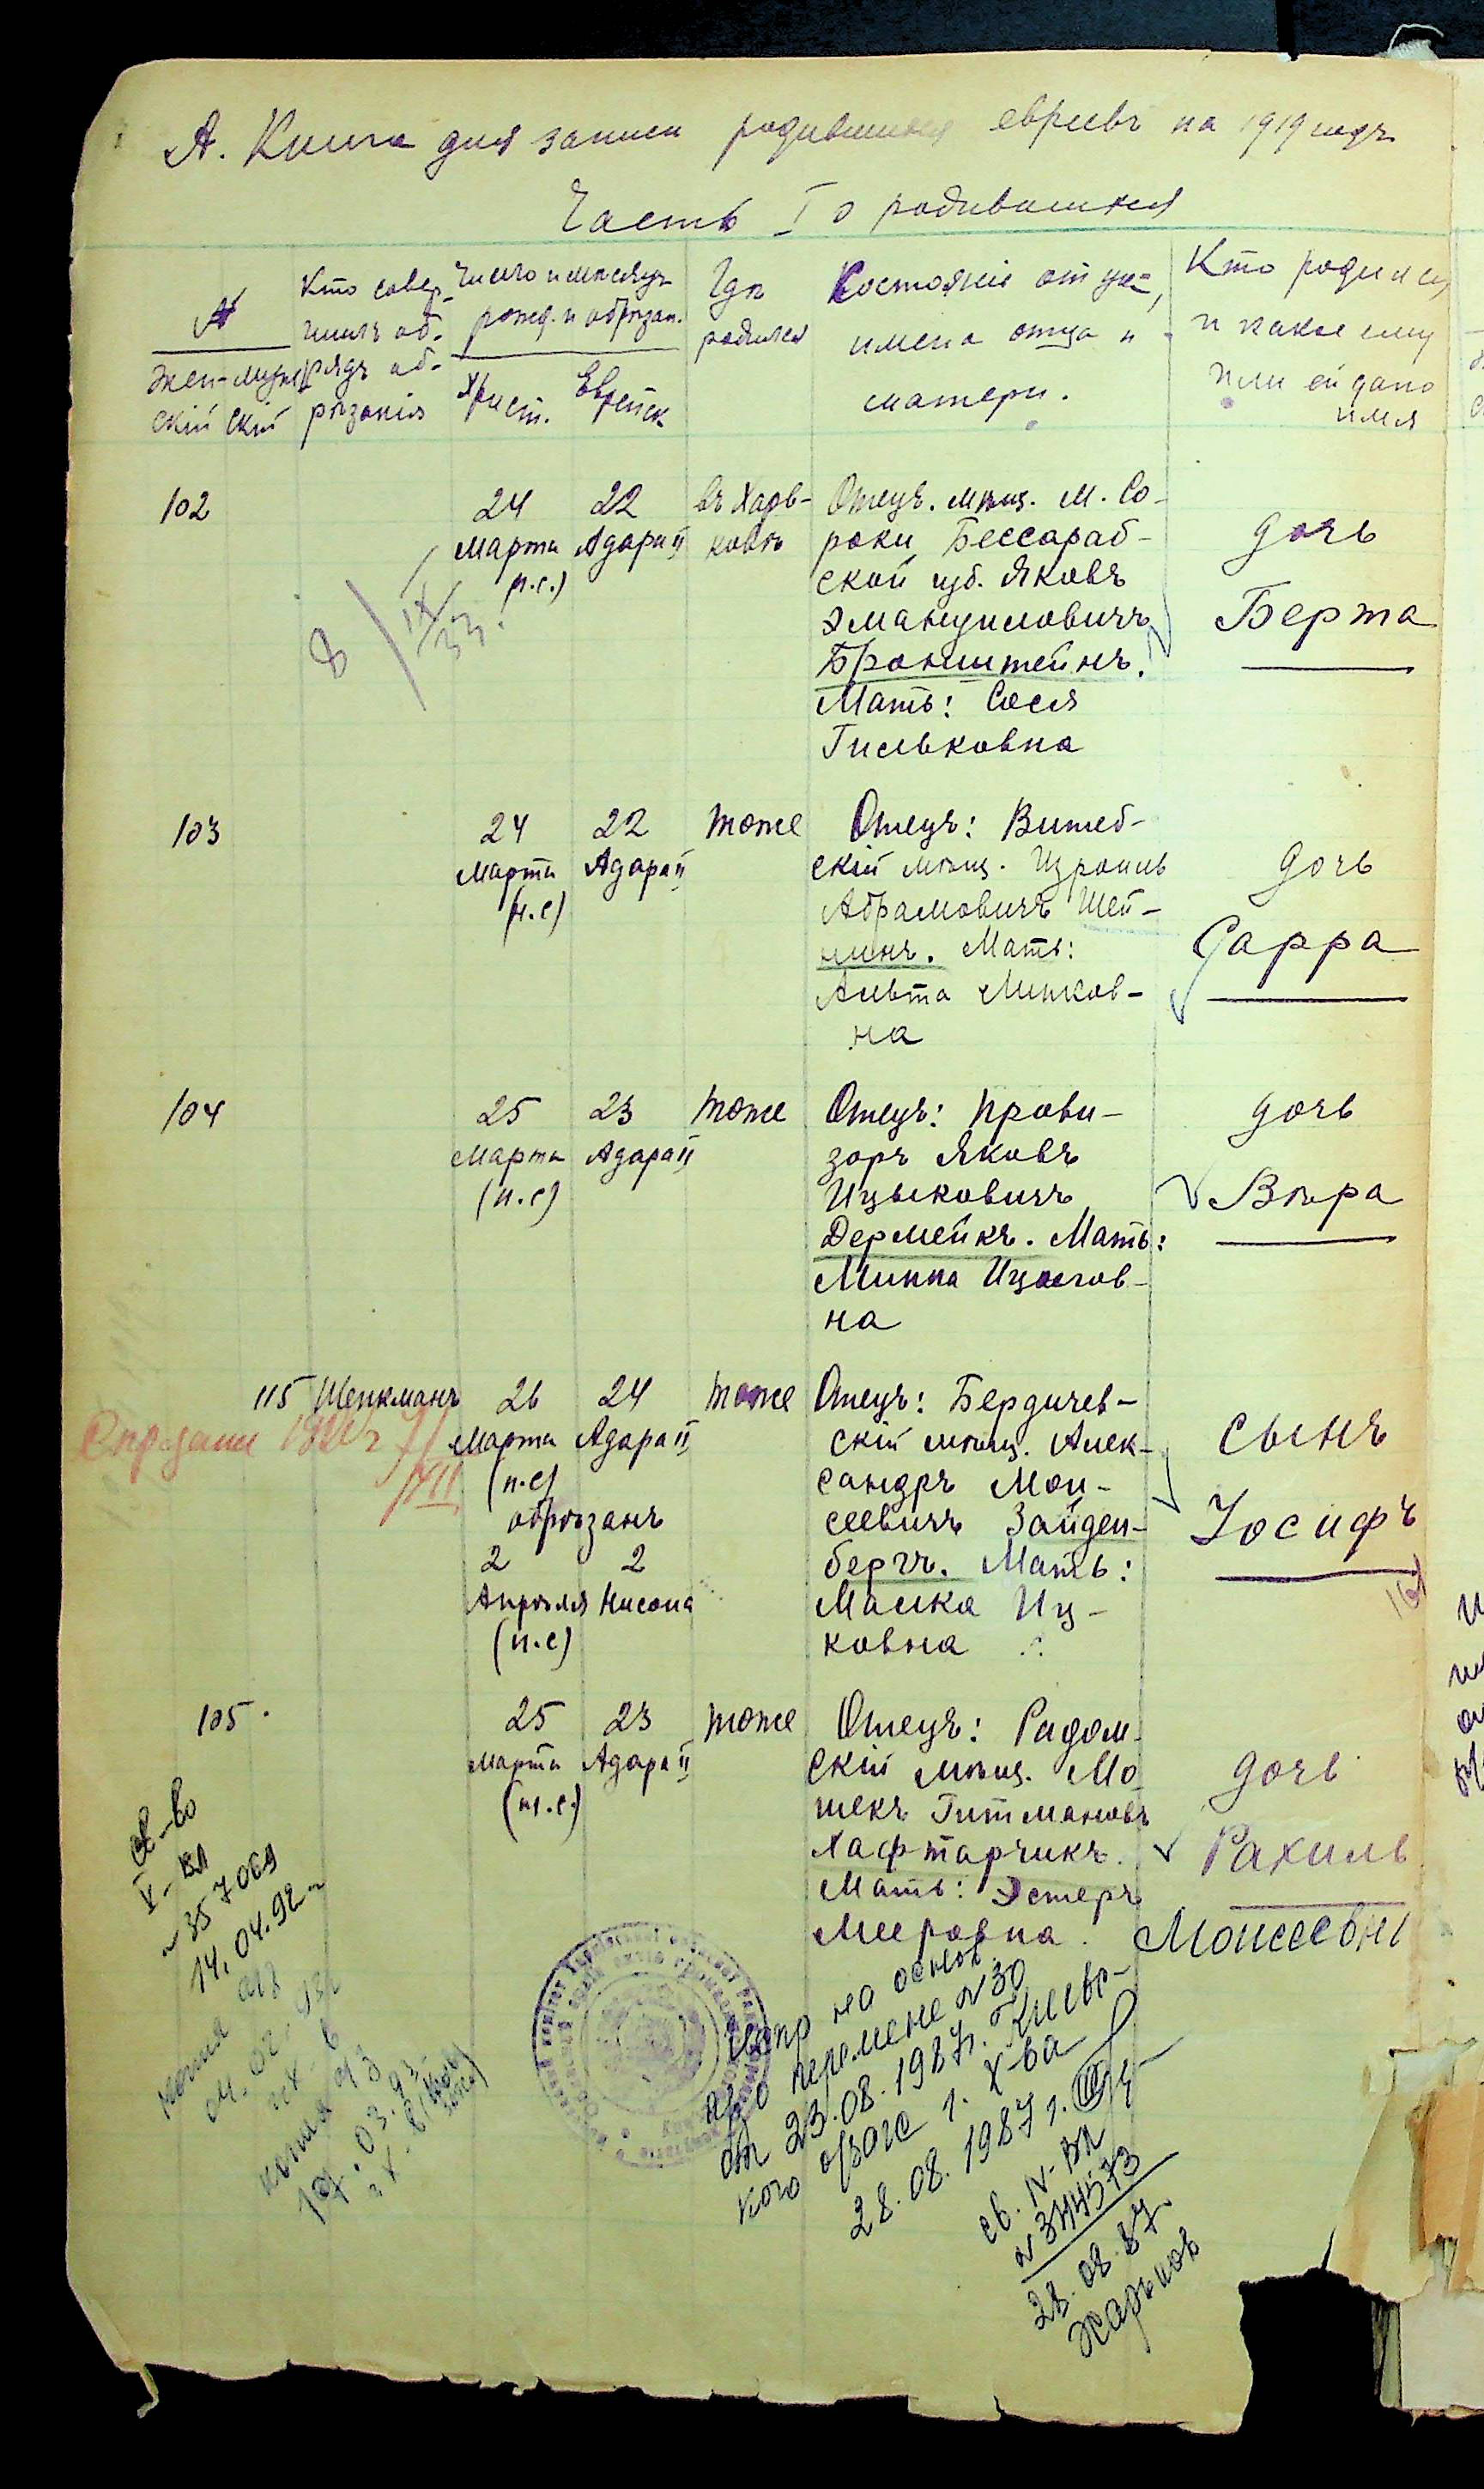 А. Книга для записи родившихся евреевъ на 1919 годъ
Часть I о родившихся
№
Жен-
скій
Муж-
ской
Кто совер-
шилъ об-
рядъ об-
рѣзанія
Число и мѣсяцъ
рожд. и обрѣзан.
Христ. Еврейск.
Гдѣ
родился
Состояніе отца,
имена отца и
матери.
Кто родился,
и какое ему
или ей дано
имя
102
24
Марта
(н.с.)
22
Адара II
въ Харь-
ковѣ
Отецъ. мѣщ. М. Со-
роки, Бессараб-
ской губ. Яковъ
Эмануиловичъ
Бронштейнъ.
Мать: Сося
Гильковна
дочь
Берта
8/IX 33.
103
24
Марта
(н.с)
22
Адара II
тоже
Отецъ: Витеб-
скій мѣщ. Израиль
Абрамовичъ Шей-
нинъ. Мать:
Альта Минков-
на
дочь
Сарра
104
25
Марта
(н.с)
23
Адара II
тоже
Отецъ: прови-
зоръ Яковъ
Ицыковичъ
Дермейкъ. Мать:
Минна
на
дочь
Вѣра
115
Шенкманъ
26
Марта
(н.с)
24
Адара II
обрѣзанъ
2
Апрѣля
(н.с)
2
Нисона
тоже
Отецъ: Бердичев-
скій мѣщ. Алек-
сандръ Мои-
сеевичъ Зайден-
бергъ. Мать:
Малка Иц-
ковна
сынъ
Іосифъ
105.
25
Марта
(н.с.)
23
Адара II
тоже
Отецъ: Радом-
скій мѣщ. Мо
шекъ Гитмановъ
Хафтарчикъ.
Мать: Эстеръ
Мееровна.
дочь
Рахиль
Моисеевны
св-во
V-ВЛ
№357069
14.04.92г
копия
копия
17.03.93
Испр на основ.
перемене №30
от 23.08.1987г. Киевс-
кого г. Х-ва
28.08.1987г.
св. IV-ВЛ
28.08.87.
Харьков